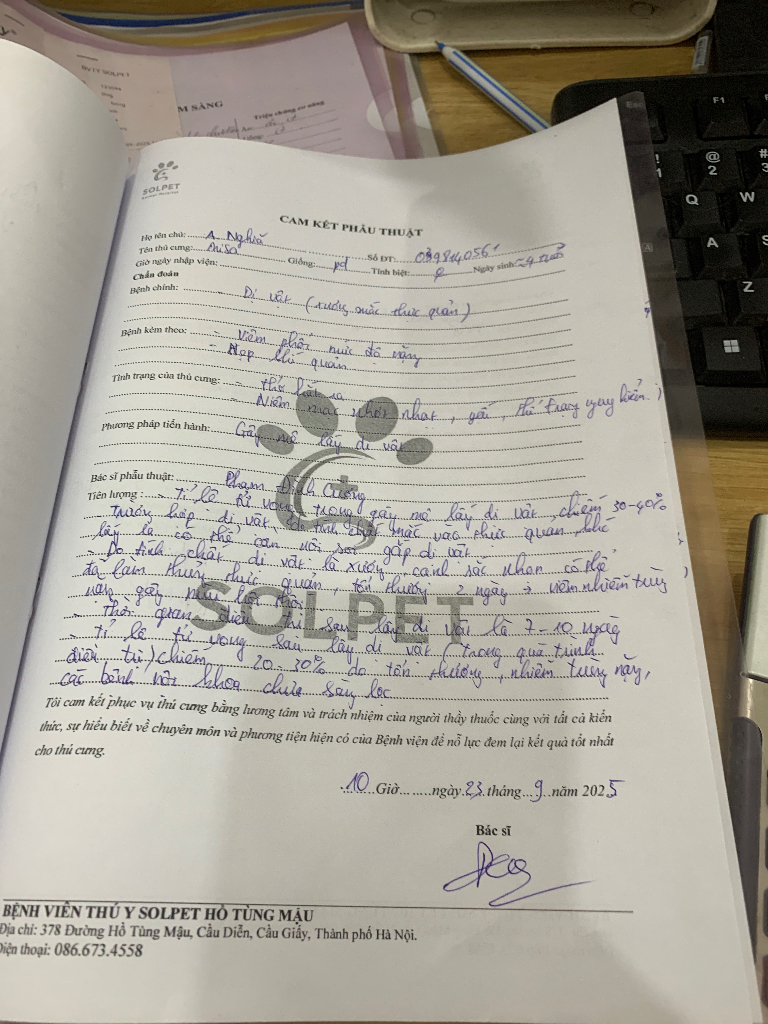 BVTY SOLPET
M SÀNG
Triệu chứng cơ năng
SOLPET
CAM KẾT PHẪU THUẬT
Họ tên chủ: A. Nghĩa Số ĐT: 0398140561
Tên thú cưng: Giống: pd Tính biệt: Ngày sinh: ~4 tuổi
Giờ ngày nhập viện:
Chẩn đoán
Bệnh chính: - Dị vật (xương mắc thực quản)
Bệnh kèm theo: - Viêm phổi mức độ nặng
- Hẹp khí quản
Tình trạng của thú cưng: - thở
- Niêm mạc nhợt nhạt, thể trạng nguy hiểm
Phương pháp tiến hành: Gây mê lấy dị vật
Bác sĩ phẫu thuật: Phạm Đình Cường
Tiên lượng: - Tỉ lệ tử vong trong gây mê lấy dị vật chiếm 30-40%
Trường hợp dị vật có tính chất mắc vào thực quản, khó
lấy ra có thể can nội soi gắp dị vật
- Do tính chất dị vật là xương cạnh sắc nhọn có thể
đã làm thủng thực quản, tổn thương 2 ngày → viêm nhiễm trùng
nặng gây
- Thời gian điều trị sau lấy dị vật là 7-10 ngày
- Tỉ lệ tử vong sau lấy dị vật (trong quá trình
điều trị) chiếm 20-30% do tổn thương, nhiễm trùng nặng,
các bệnh nội khoa chưa sàng lọc
Tôi cam kết phục vụ thú cưng bằng lương tâm và trách nhiệm của người thầy thuốc cùng với tất cả kiến
thức, sự hiểu biết về chuyên môn và phương tiện hiện có của Bệnh viện để nỗ lực đem lại kết quả tốt nhất
cho thú cưng.
10 Giờ ngày 23 tháng 9 năm 2025
Bác sĩ
SOLPET
BỆNH VIỆN THÚ Y SOLPET HỒ TÙNG MẬU
Địa chỉ: 378 Đường Hồ Tùng Mậu, Cầu Diễn, Cầu Giấy, Thành phố Hà Nội.
Điện thoại: 086.673.4558
Esc
F1
!
1
@
2
#
3
Q
W
A
S
Z